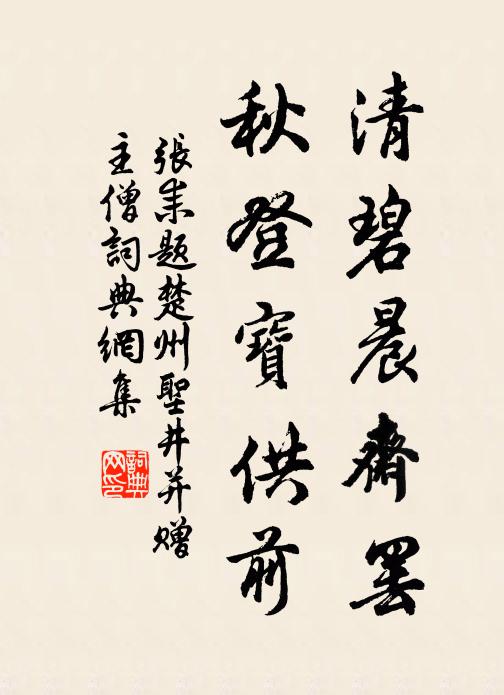 清碧晨齋罷
秋登寶供前
張耒題楚州聖井并贈
主僧詞典網集
詞典
网印